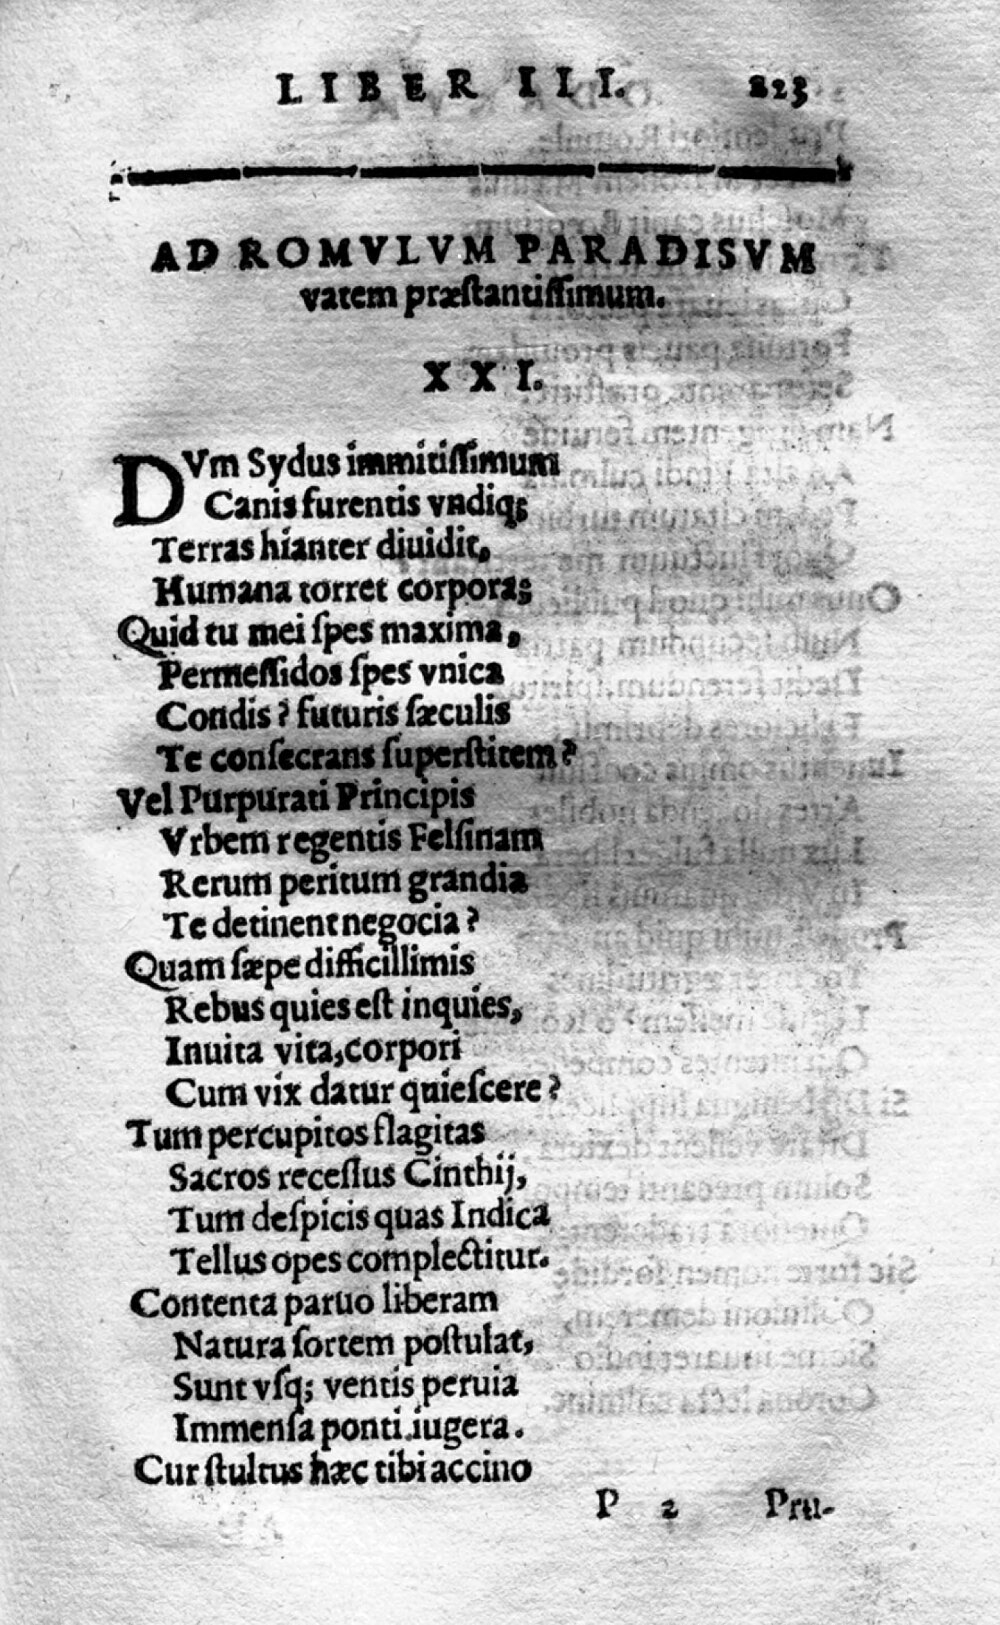 LIBER III. 223
AD ROMVLVM PARADISVM
vatem præstantissimum.
XXI.
DVm Sydus immitissimum
Canis furentis vndiq;
Terras hianter diuidit,
Humana torret corpora;
Quid tu mei spes maxima,
Permessidos spes vnica
Condis? futuris sæculis
Te consecrans superstitem?
Vel Purpurati Principis
Vrbem regentis Felsinam
Rerum peritum grandia
Te detinent negocia?
Quam sæpe difficillimis
Rebus quies est inquies,
Inuita vita, corpori
Cum vix datur quiescere?
Tum percupitos flagitas
Sacros recessus Cinthij,
Tum despicis quas Indica
Tellus opes complectitur.
Contenta paruo liberam
Natura sortem postulat,
Sunt vsq; ventis peruia
Immensa ponti iugera.
Cur stultus hæc tibi accino
P 2 Pru-